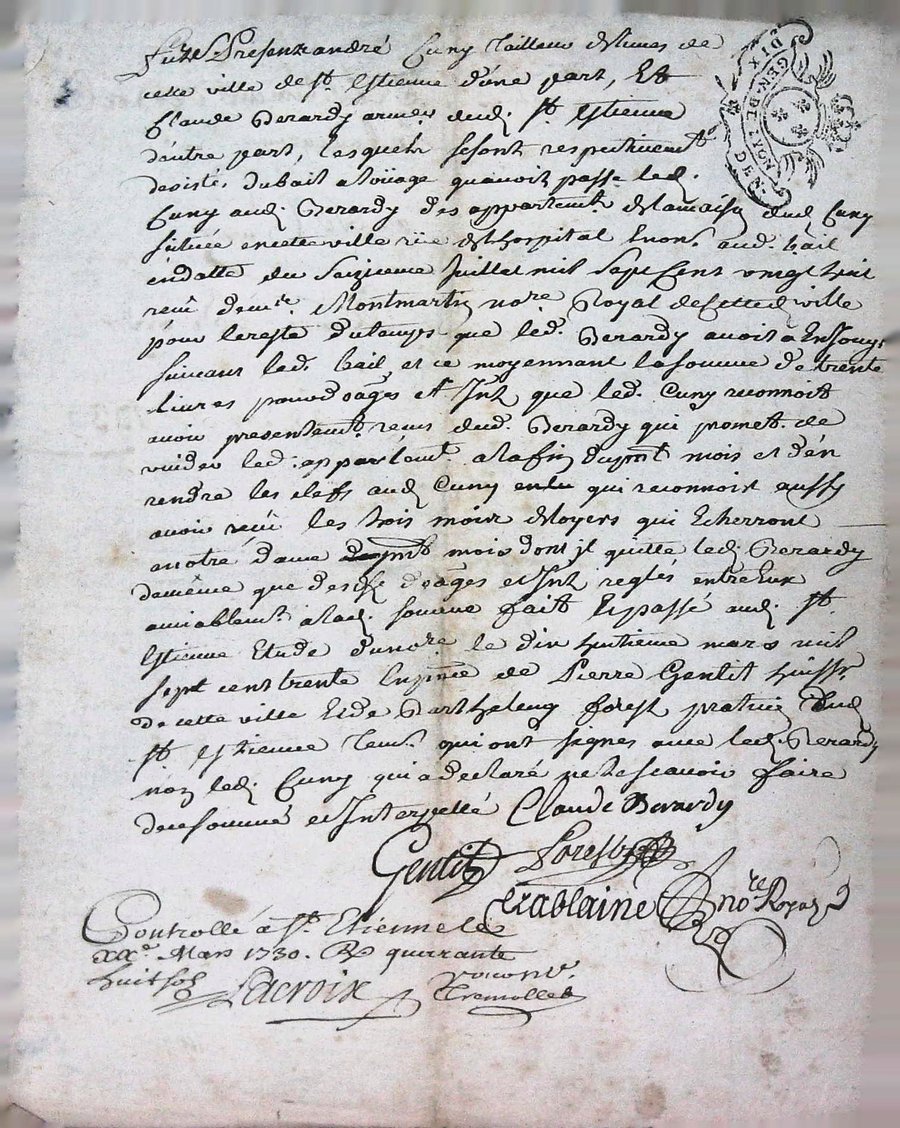 Furent Presentz andré Cuny Tailleur de limes de
cette ville de St. Estienne d'une part, Et
Claude Berardy armeur dud. St Estienne
d'autre part, Lesquels se sont respectivemt
desisté du bail a loüage qu'avoit passé led.
Cuny aud. Berardy des appartemts de la maison dud Cuny
située en cette ville rüe de Lhospital Enon. aud. bail
en datte du Seizieme Juillet mil Sept Cent vingt huit
receu de me. Montmartin nore Royal de cette d. ville
pour le reste du temps que led. Berardy avoit a En Jouyr
suivant led. bail, et ce moyennant la somme de trente
livres pour d'oages et Intz que led. Cuny reconnoit
avoir presentemt. receus dud. Berardy qui promet. de
vuider led. appartemt a la fin du pnt mois et d'en
rendre les clefs aud. Cuny qui reconnoit aussy
avoir reçu les trois mois de loyers qui Echerront
a notre dame mois dont jl quitte led. Berardy
de même que desd. d'oages et Intz reglés entre Eux
amiablemt. a lad. somme fait Et passé aud. St.
Estienne Etude du nore. le dix huitieme mars mil
sept cent trente En pnce de Pierre Gentil huissr
de cette ville Et de Barthelemy forest praticien dud.
St Estienne temns. qui ont signes avec led. Berardy
non led. Cuny qui a declaré ne le scavoir faire
de ce sommé et Interpellé Claude Berardy
Gentil Forest
Chablaine nore Royal
Controllé a St. Etienne le
XXe. Mars 1730. R quarante
huit sols Lacroix
Tremollet
GEN. DE LYON
DIX DEN.